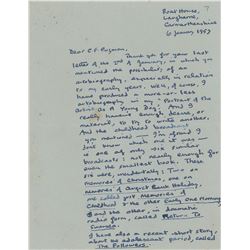 Boat House,
Laugharne,
Carmarthenshire
6 January 1953
Dear E.F. Bozman,
Thank you for your last
letter of the 2nd of January, in which you
mentioned the possibility of an
autobiography, especially in relation
to my early years. Well, of course, I
have produced a more-or-less
autobiography in my "Portrait of the
Artist As A Young Dog". And I
really haven't enough desire, or
material, to try to write another.
And the childhood broadcasts
you mentioned — I'm afraid I
don't know which one
are only six similar
broadcasts: not nearly enough for
even the smallest book. These
six were, incidentally: Two on
Memories of Christmas, one on
memories of August Bank Holiday,
one called just Memories of
Childhood & the other Early One Morning
& the other, a dramatic
radio form, called Return To
Swansea.
I have also a recent short story,
about the adolescent period, called
The Followers.